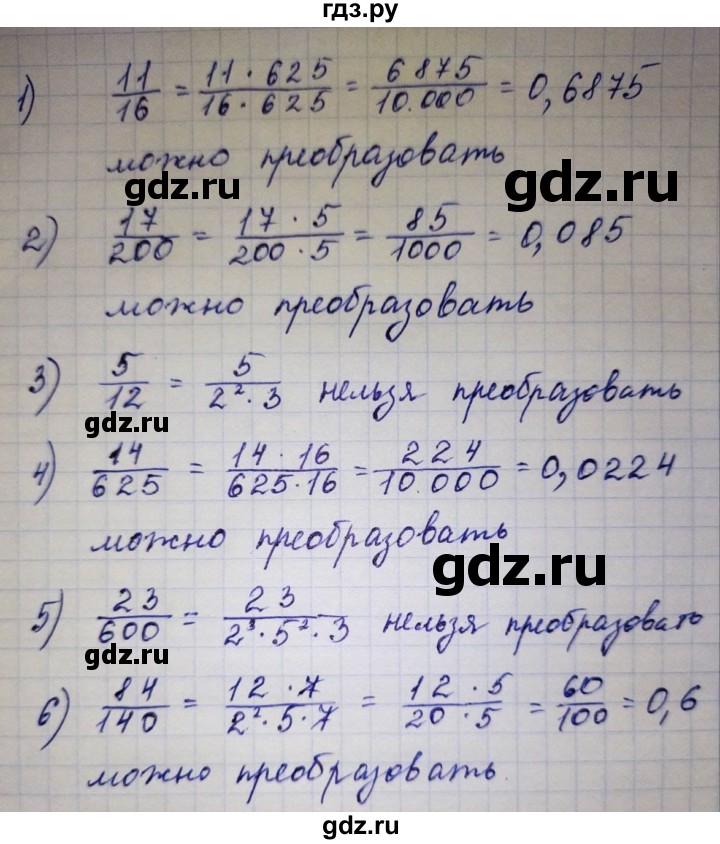 гдз.ру
1) 11/16 = 11 · 625/16 · 625 = 6875/10.000 = 0,6875
можно преобразовать
gdz.ru
gdz.ru
2) 17/200 = 17 · 5/200 · 5 = 85/1000 = 0,085
можно преобразовать
3) 5/12 = 5/2² · 3 нельзя преобразовать
gdz.ru
4) 14/625 = 14 · 16/625 · 16 = 224/10.000 = 0,0224
можно преобразовать
gdz.ru
5) 23/600 = 23/2³ · 5² · 3 нельзя преобразовать
gdz.ru
6) 84/140 = 12 · 7/2² · 5 · 7 = 12 · 5/20 · 5 = 60/100 = 0,6
можно преобразовать.
gdz.ru
gdz.ru